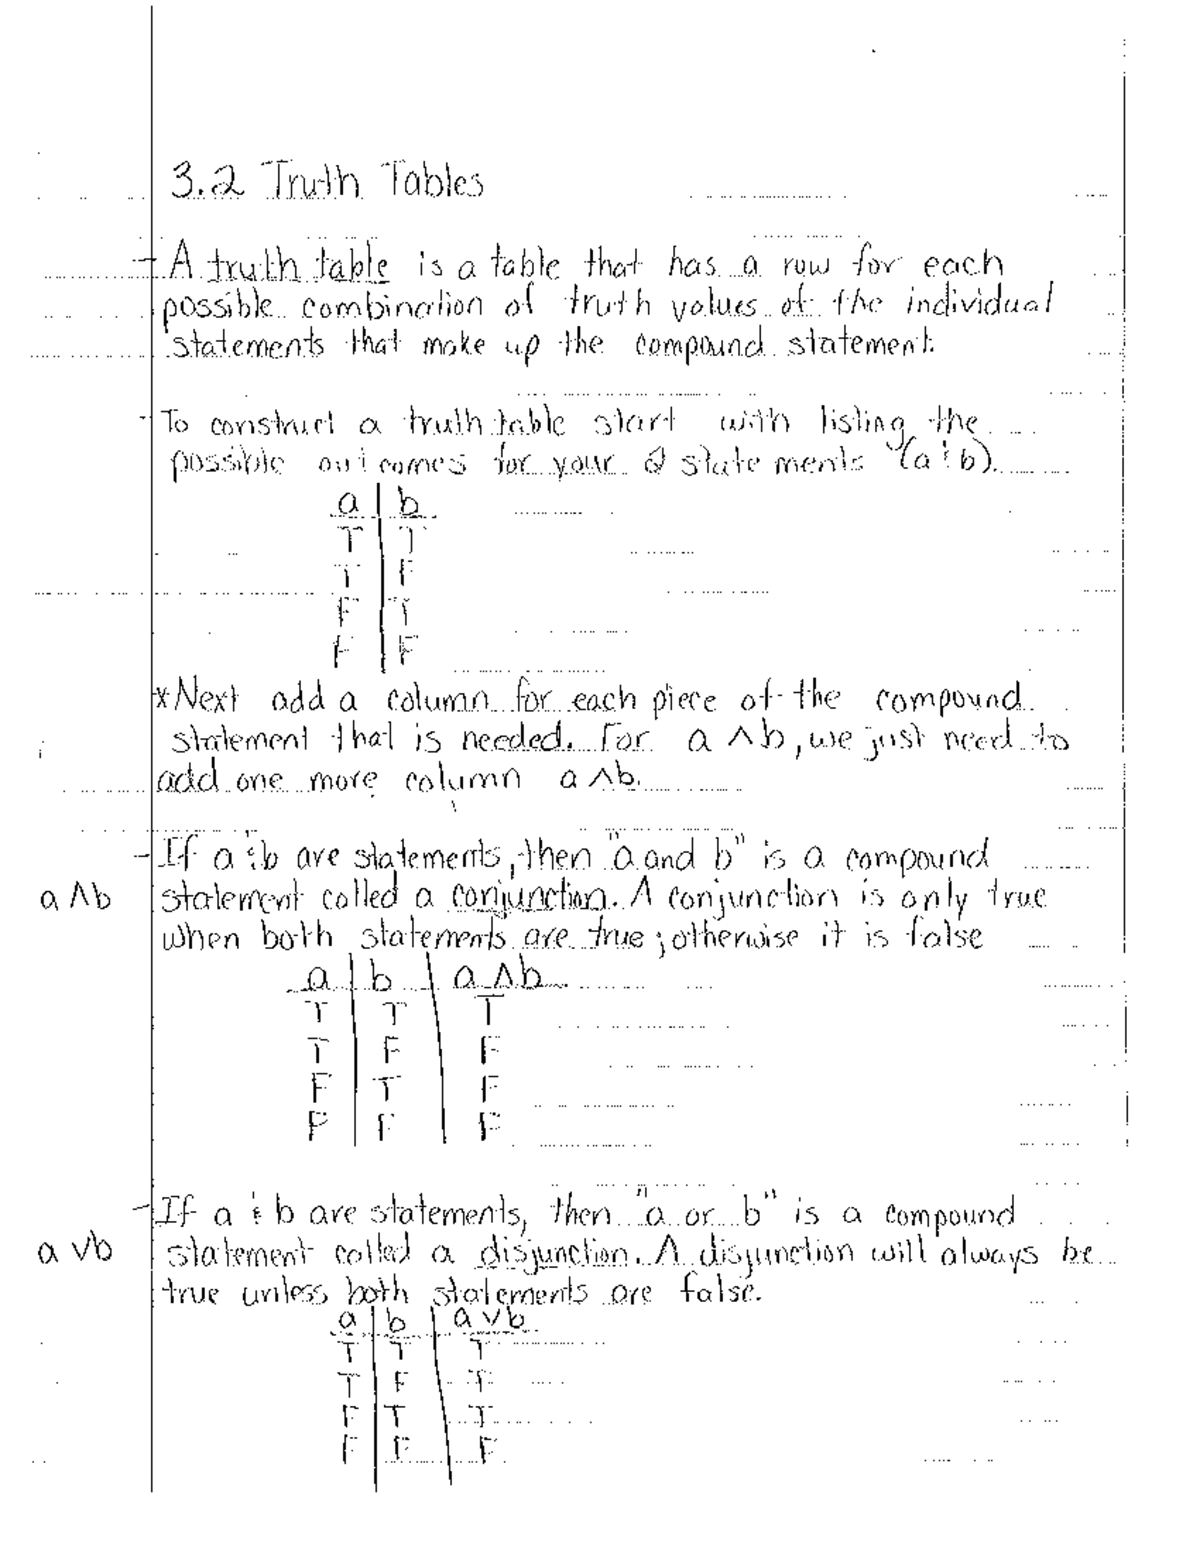 3.2 Truth Tables
- A truth table is a table that has a row for each
possible combination of truth values of the individual
statements that make up the compound statement.
- To construct a truth table start with listing the
possible outcomes for your 2 statements (a & b).
a | b
T | T
T | F
F | T
F | F
* Next add a column for each piece of the compound
statement that is needed. For a ∧ b, we just need to
add one more column a ∧ b.
- If a & b are statements, then "a and b" is a compound
a ∧ b statement called a conjunction. A conjunction is only true
when both statements are true; otherwise it is false
a | b | a ∧ b
T | T | T
T | F | F
F | T | F
F | F | F
- If a & b are statements, then "a or b" is a compound
a ∨ b statement called a disjunction. A disjunction will always be
true unless both statements are false.
a | b | a ∨ b
T | T | T
T | F | T
F | T | T
F | F | F